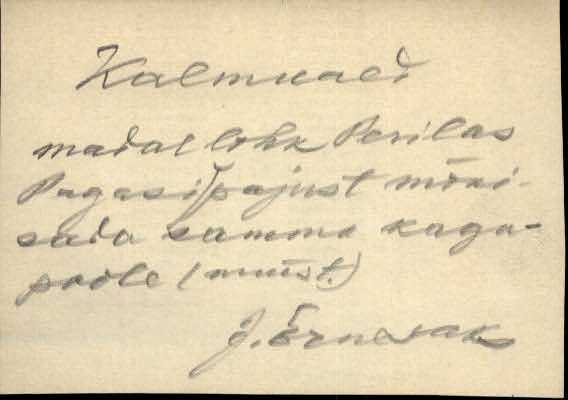 Kalmuaed
madal lohk Perilas
Pagasi pajust mõni-
sada sammu kaga-
poole (muist.)
J. Ernesaks